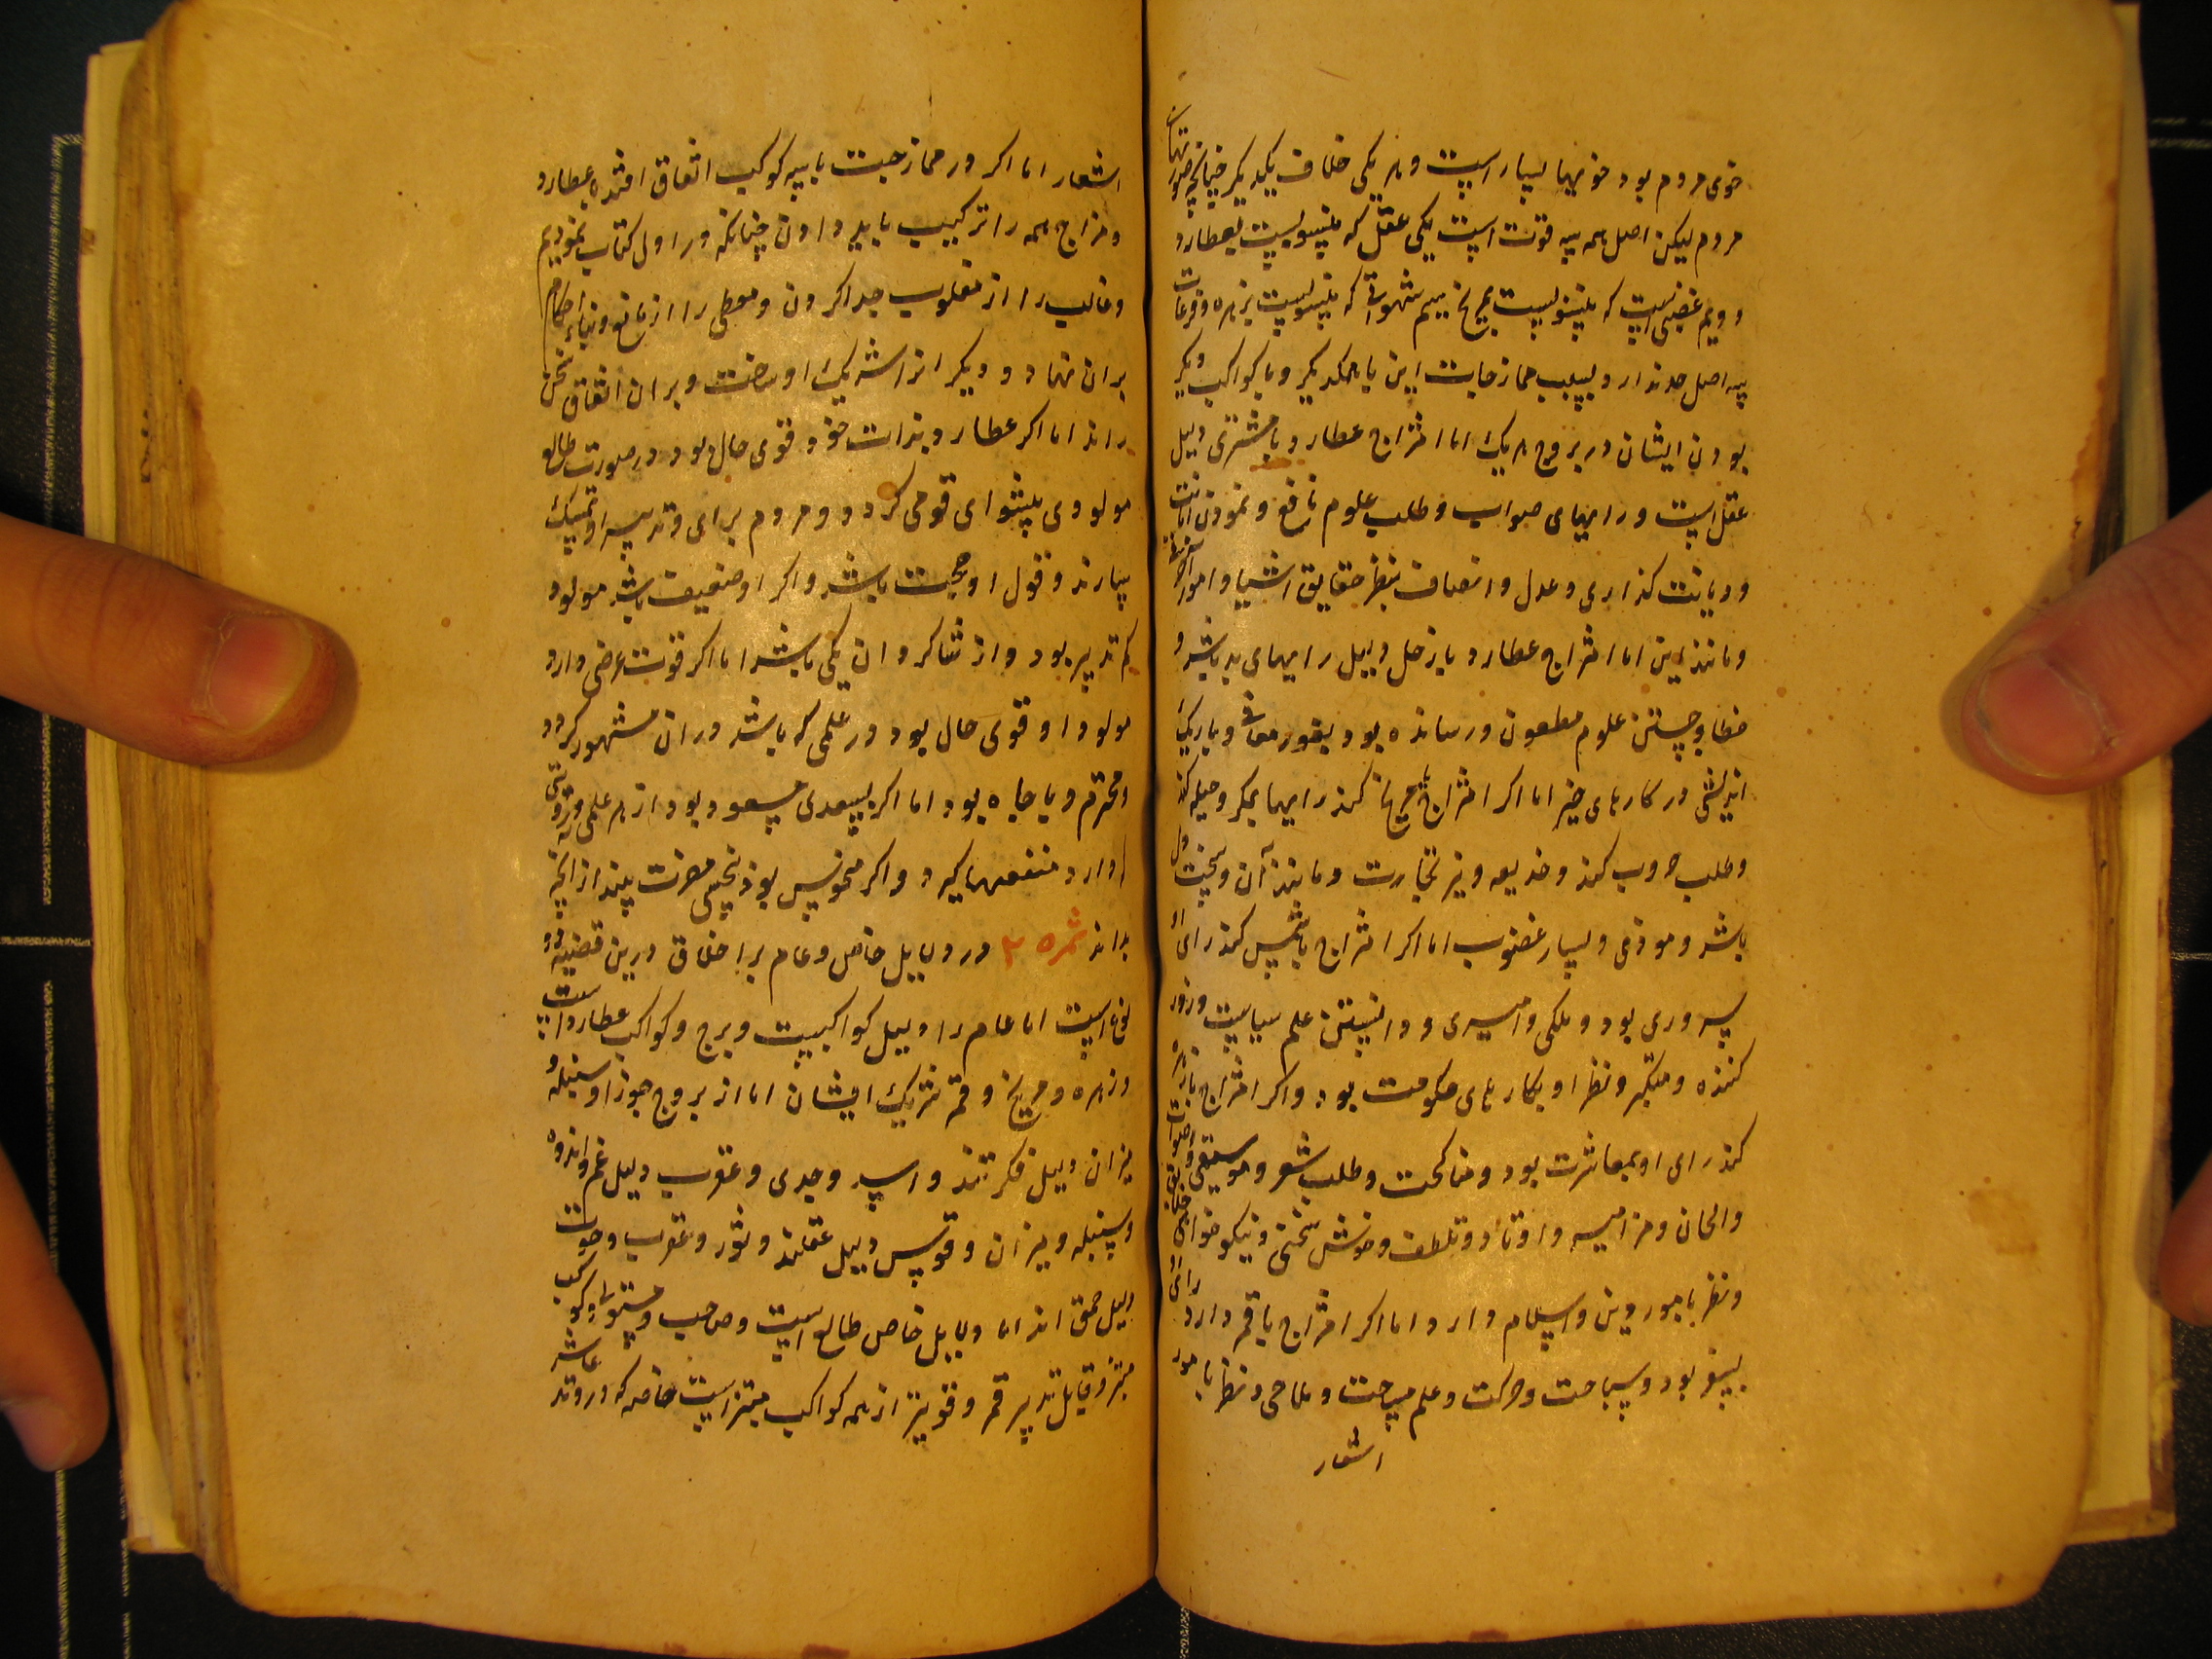 خوی مردم بود خویها بسیار است و هر یکی خلاف یکدیگر چنانچه صورتهای
مردم لیکن اصل همه سه قوت است یکی عقل که منسوبست بعطارد
دویم غضبی است که منسوبست بمریخ سیم شهواتی که منسوبست بزهره و فرعات
سه اصل حد ندارد و بسبب ممازجات این با همکدیگر و با کواکب دیگر
بودن ایشان در بروج هر یک اما امتزاج عطارد با مشتری دلیل
عقل است و رایهای صواب و طلب علوم نافع و نمودن امانت
و دیانت گذاری و عدل و انصاف بنظر حقایق اشیا و امور
و مانند این اما امتزاج عطارد با زحل دلیل رایهای بد باشد و
خطا و جستن علوم مطعون و رساننده بود بغور معانی و باریک
اندیشی در کارهای خیر اما اگر امتزاج با مریخ کند رایها بمکر و حیله کند
و طلب حروب کند و خدیعه و نیز تجارت و مانند آن و سخت دل
باشد و موذی و بسیار غضوب اما اگر امتزاج با شمس کند رای او
سروری بود و ملکی و امیری و دانستن علم سیاست و زور
کننده و متکبر و نظر او بکارهای حکومت بود و اگر امتزاج با زهره
کند رای او بمعاشرت بود و مناکحت و طلب شعر و موسیقی و اصوات
و الحان و مزامیر و اوتاد و تلطف و خوش سخنی و نیکو خوانی
و نظر بامور دین و اسلام دارد اما اگر امتزاج با قمر دارد رای او
بسفر بود و سیاحت و حرکت و علم مساحت و ملاحی و نظر بامور
اشعار
اشعار اما اگر در ممازجت با سه کوکب اتفاق افتد عطارد
و مزاج همه را ترکیب باید دادن چنانکه در اول کتاب نمودیم
و غالب را از مغلوب جدا کردن و معطی را از مانع و بناء احکام
بران نهاد و دیگر انرا شریک او ساخت و بران اتفاق سخن
راند اما اگر عطارد بذات خود قوی حال بود در صورت طالع
مولودی پیشوای قومی گردد و مردم برای و تدبیر او تمسک
سپارند و قول او حجت باشد و اگر او ضعیف باشد مولود
کم تدبیر بود و از شاکردان یکی باشد اما اگر قوت عرضی دارد
مولود او قوی حال بود در علمی که باشد دران مشهور گردد
و محترم و با جاه بود اما اگر بسعدی مسعود بود از هر علمی و ثروتی
دارد منفعتها گیرد و اگر منحوس بود بنحسی مضرت بیند از آنچه
بداند ثمره ۳ در دلایل خاص و عام بر اخلاق درین قضیه دو
نوع است اما عام را دلیل کواکبست و برج و کواکب عطارد است
و زهره و مریخ و قمر شریک ایشان اما از بروج جوزا و سنبله و
میزان دلیل فکرتند و اسد و جدی و عقرب دلیل غم و اندوه
و سنبله و میزان و قوس دلیل عقلند و ثور و عقرب و حوت
دلیل حمق اند اما دلایل خاص طالع است و صاحب و مستولی و کوکب
مبتز و قابل تدبیر قمر و قویتر از همه کواکب مبتز است خاصه که در وتد عاشر